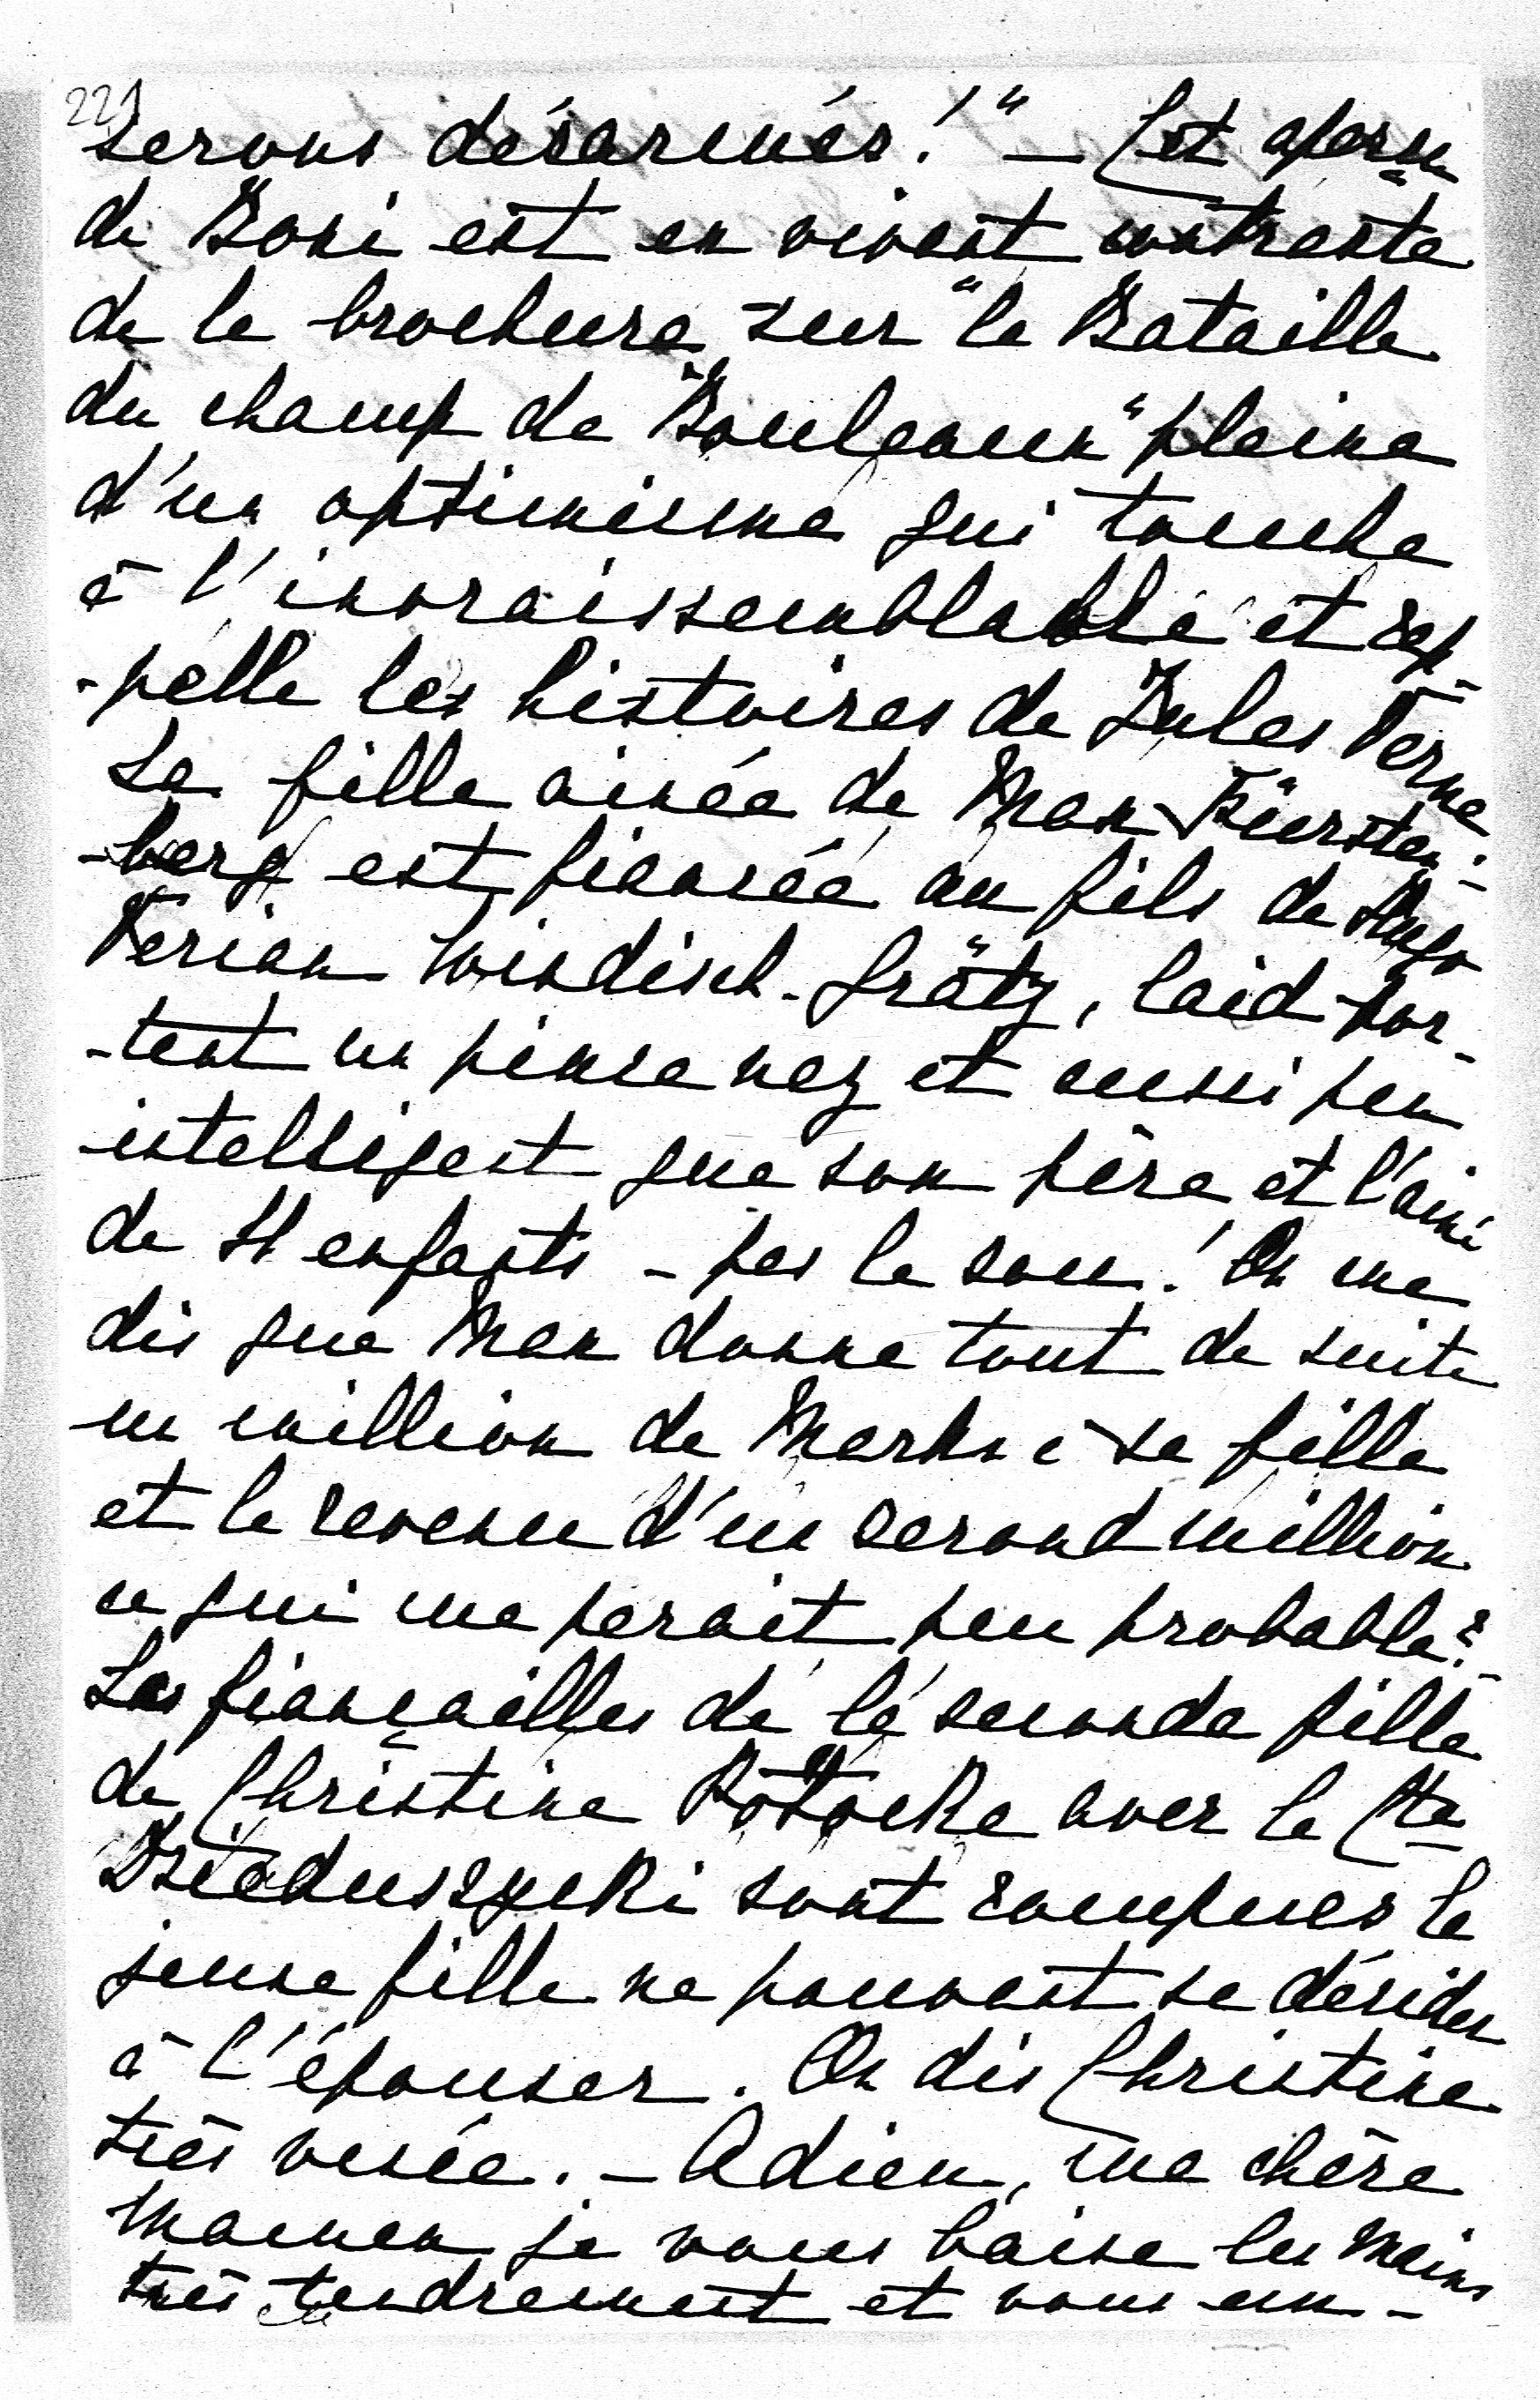 221
serons désarmés!" — Cet aperçu
de Boni est en vivant contraste
de la brochure sur "la Bataille
du champ de Bouleaux" pleine
d'un optimisme qui touche
à l'invraissemblable et rap-
-pelle les histoires de Jules Verne.
La fille ainée de Max Fürsten-
-berg est fiancée au fils de Hugo
Verian Windisch-Grätz, laid por-
-tant un pince nez et aussi peu
intelligent que son père et l'ainé
de 11 enfants - pas le sou! On me
dis que Max donne tout de suite
un million de Marks à sa fille
et le revenu d'un second million
ce qui me parait peu probable?
Les fiançailles de la seconde fille
de Christine Potocka avec le Cte
Dzieduszycki sont rompues la
jeune fille ne pouvant se décider
à l'épouser. On dis Christine
très vexée. — Adieu, ma chère
Maman je vous baise les mains
très tendrement et vous em-